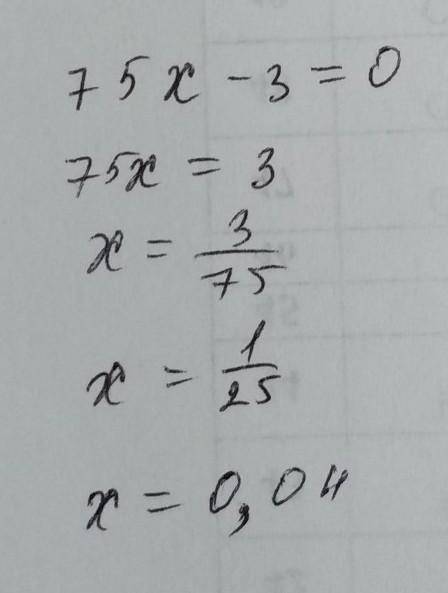 75x - 3 = 0
75x = 3
x = 3/75
x = 1/25
x = 0,04